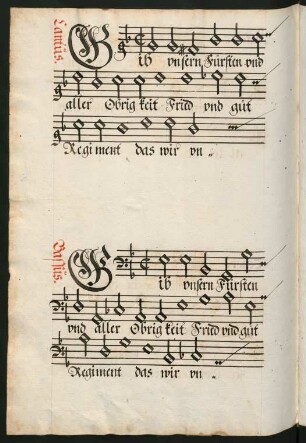 Cantus.
Gib vnsern Fürsten vnd
aller Obrigkeit Frid vnd gůt
Regiment das wir vn
Baßus.
Gib vnsern Fürsten
vnd aller Obrigkeit Frid vnd gůt
Regiment das wir vn